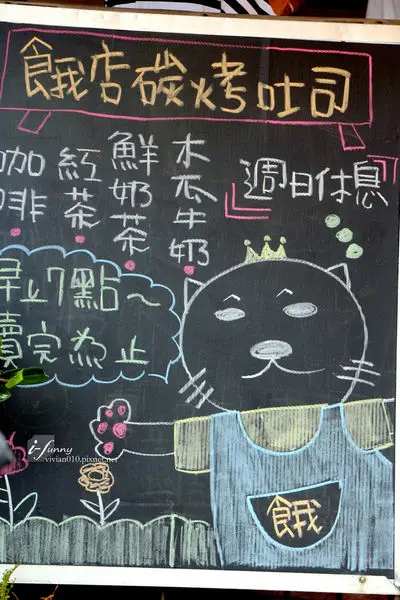 餓店碳烤吐司
週日休息
木瓜牛奶
鮮奶茶
紅茶
咖啡
早上7點~
賣完為止
餓
i-funny
vivian010.pixnet.net